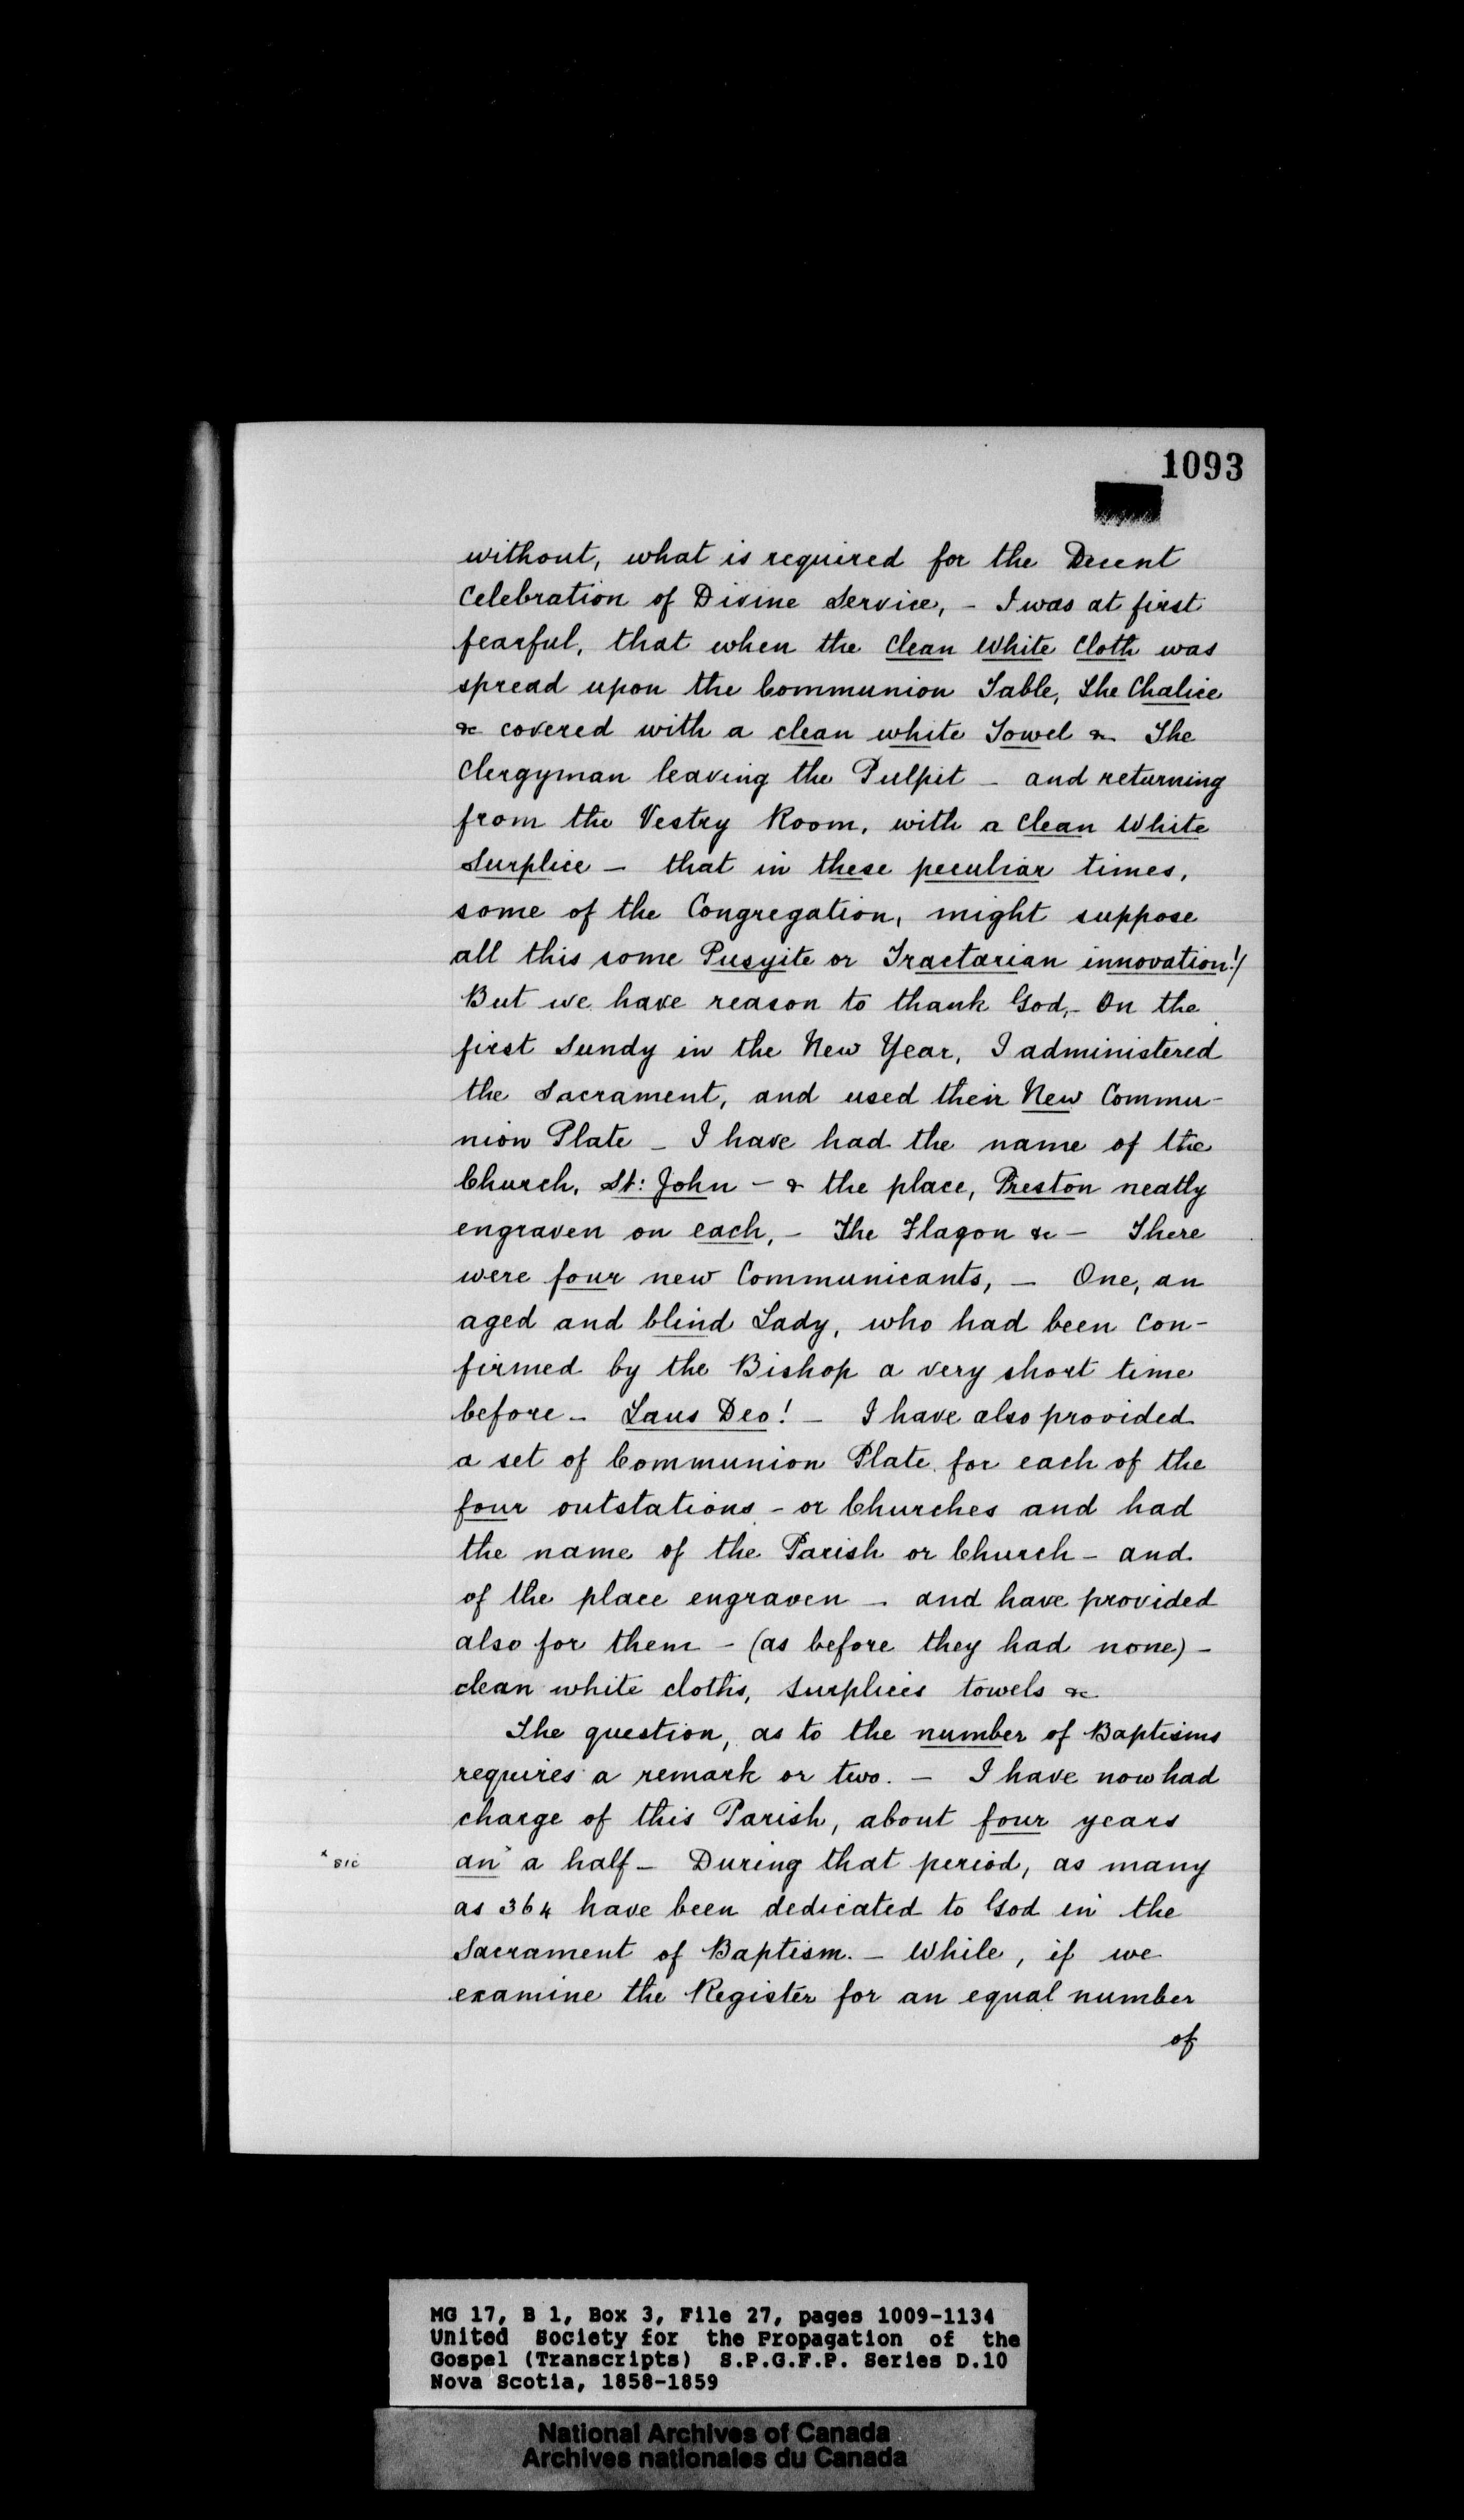 1093
without, what is required for the Decent
Celebration of Divine Service, - I was at first
fearful, that when the Clean White Cloth was
spread upon the Communion Table, The Chalice
&c covered with a clean white Towel &c The
Clergyman leaving the Pulpit - and returning
from the Vestry Room, with a Clean White
Surplice - that in these peculiar times,
some of the Congregation, might suppose
all this some Pusyite or Tractarian innovation!/
But we have reason to thank God,- On the
first Sundy in the New Year, I administered
the Sacrament, and used their New Commu-
nion Plate - I have had the name of the
Church, St: John - & the place, Preston neatly
engraven on each, - The Flagon &c - There
were four new Communicants, - One, an
aged and blind Lady, who had been Con-
firmed by the Bishop a very short time
before - Laus Deo! - I have also provided
a set of Communion Plate for each of the
four outstations - or Churches and had
the name of the Parish or Church - and
of the place engraven - and have provided
also for them - (as before they had none) -
clean white cloths, Surplices towels &c
The question, as to the number of Baptisms
requires a remark or two. - I have now had
charge of this Parish, about four years
x sic an x a half - During that period, as many
as 364 have been dedicated to God in the
Sacrament of Baptism. - While, if we
examine the Register for an equal number
of
MG 17, B 1, Box 3, File 27, pages 1009-1134
United Society for the Propagation of the
Gospel (Transcripts) S.P.G.F.P. Series D.10
Nova Scotia, 1858-1859
National Archives of Canada
Archives nationales du Canada